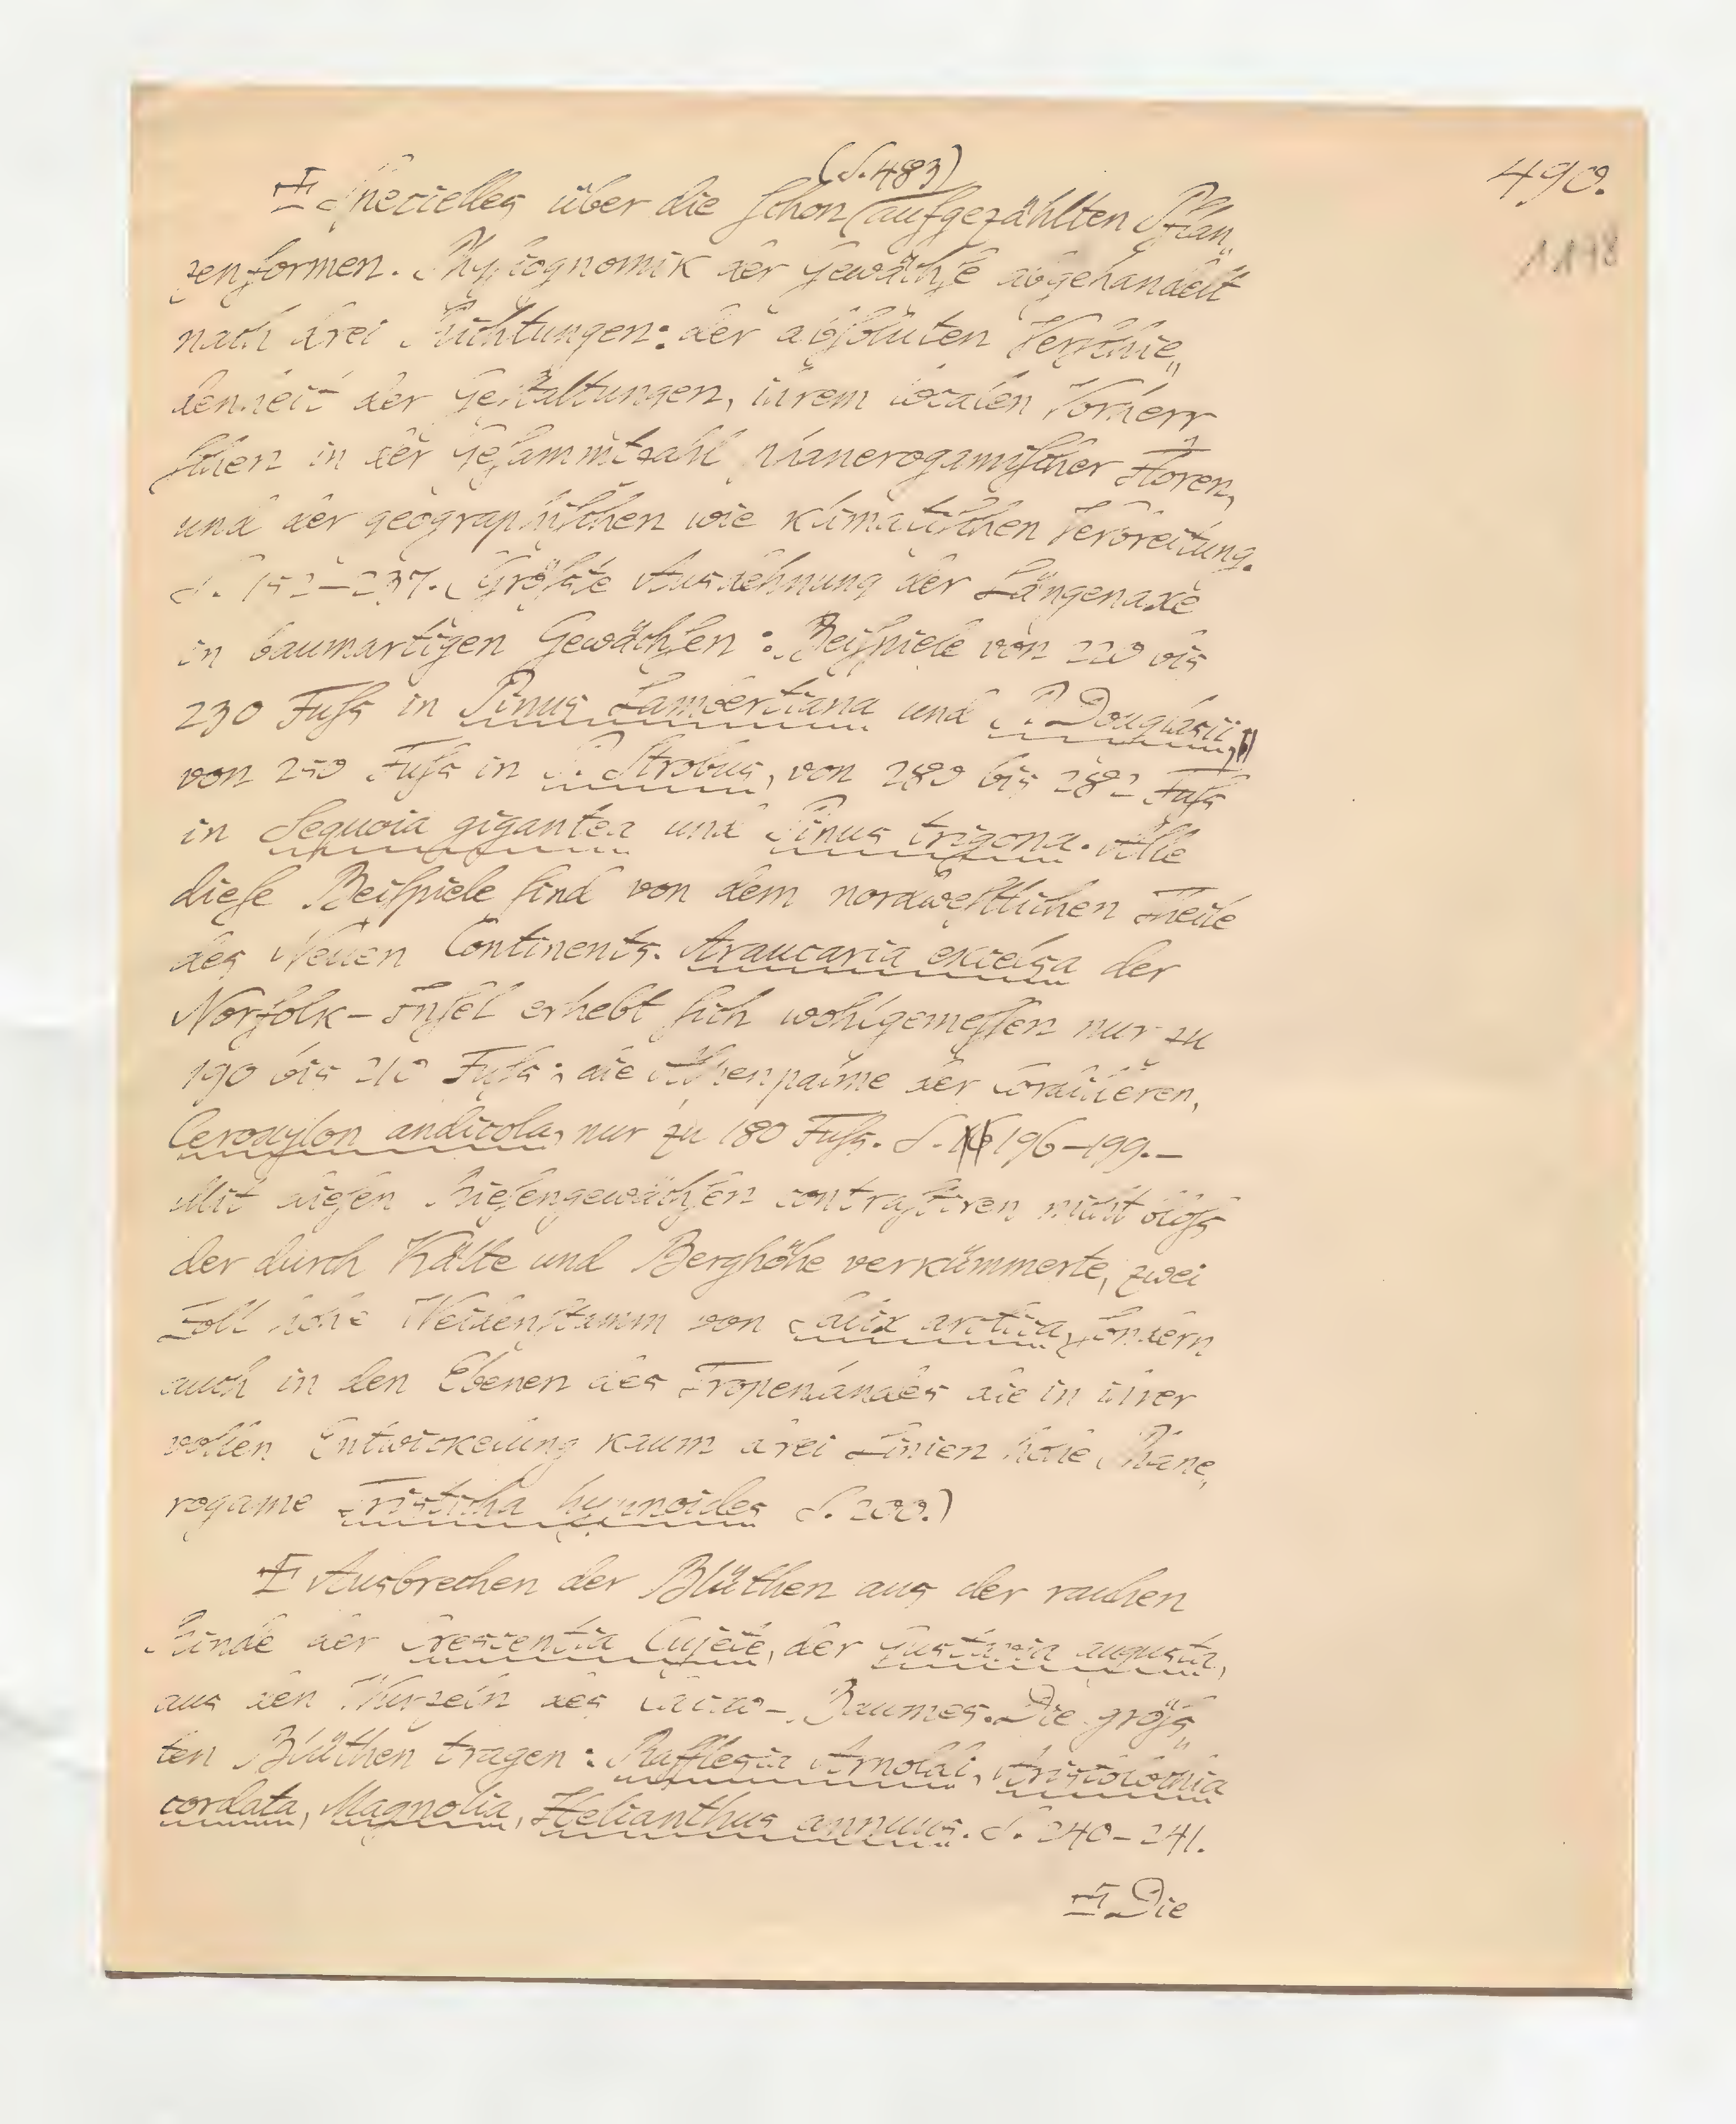 490.
1178
(S. 483)
Specielles über die schon aufgezählten Pflan„
zenformen. Physiognomik der Gewächse abgehandelt
nach drei Richtungen: der absoluten Verschie„
denheit der Gestaltungen, ihrem localen Vorherr
schen in der Gesammtzahl phanerogamischer Floren,
und der geographischen wie klimatischen Verbreitung.
S. 152–237. (Größte Ausdehnung der Längenaxe
in baumartigen Gewächsen: Beispiele von 220 bis
230 Fuſs in Pinus Lambertiana und P. Douglasii,
von 250 Fuſs in P. Strobus, von 280 bis 282 Fuſs
in Sequoia gigantea und Pinus trigona. Alle
dieſe Beiſpiele ſind von dem nordweſtlichen Theile
des Neuen Continents. Araucaria excelsa der
Norfolk-Inſel erhebt ſich wohlgemeſſen nur zu
190 bis 210 Fuſs; die Alpenpalme der Cordilleren,
Ceroxylon andicola, nur zu 180 Fuſs. S. 196–199.–
Mit dieſen Rieſengewächſen contraſtiren nicht bloſs
der durch Kälte und Berghöhe verkümmerte, zwei
Zoll hohe Weidenſtamm von Salix arctica, ſondern
auch in den Ebenen des Tropenlandes die in ihrer
vollen Entwickelung kaum drei Linien hohe Phane„
rogame Tristicha hypnoides S. 200.)
Ausbrechen der Blüthen aus der rauhen
Rinde der Crescentia Cujete, der Gustavia augusta,
aus den Wurzeln des Cacao-Baumes. Die gröſs„
ten Blüthen tragen: Rafflesia Arnoldi, Aristolochia
cordata, Magnolia, Helianthus annuus. S. 240–241.
Die